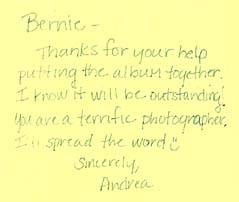 Bernie -
Thanks for your help
putting the album together.
I know it will be outstanding!
You are a terrific photographer.
I'll spread the word
Sincerely,
Andrea